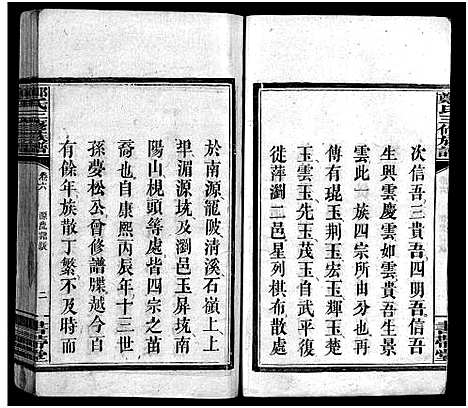 鄭氏三修族譜
書帶堂
次信吾三貴吾四明吾信吾
生興雲慶雲如雲貴吾生景
雲此一族四宗所由分也興
傳有琨玉荆玉宏玉輝玉楚
玉雲玉先玉茂玉自武平復
徙萍瀏二邑星列棋布散處
於南源龍陂清溪石嶺上上
埠湄源坑及瀏邑玉屏坑南
陽山梘頭等處皆四宗之苗
裔也自康熙丙辰年十三世
孫夢松公會修譜牒越今百
有餘年族散丁繁不及時而
鄭氏三修族譜
卷六
源流記
二
書帶堂